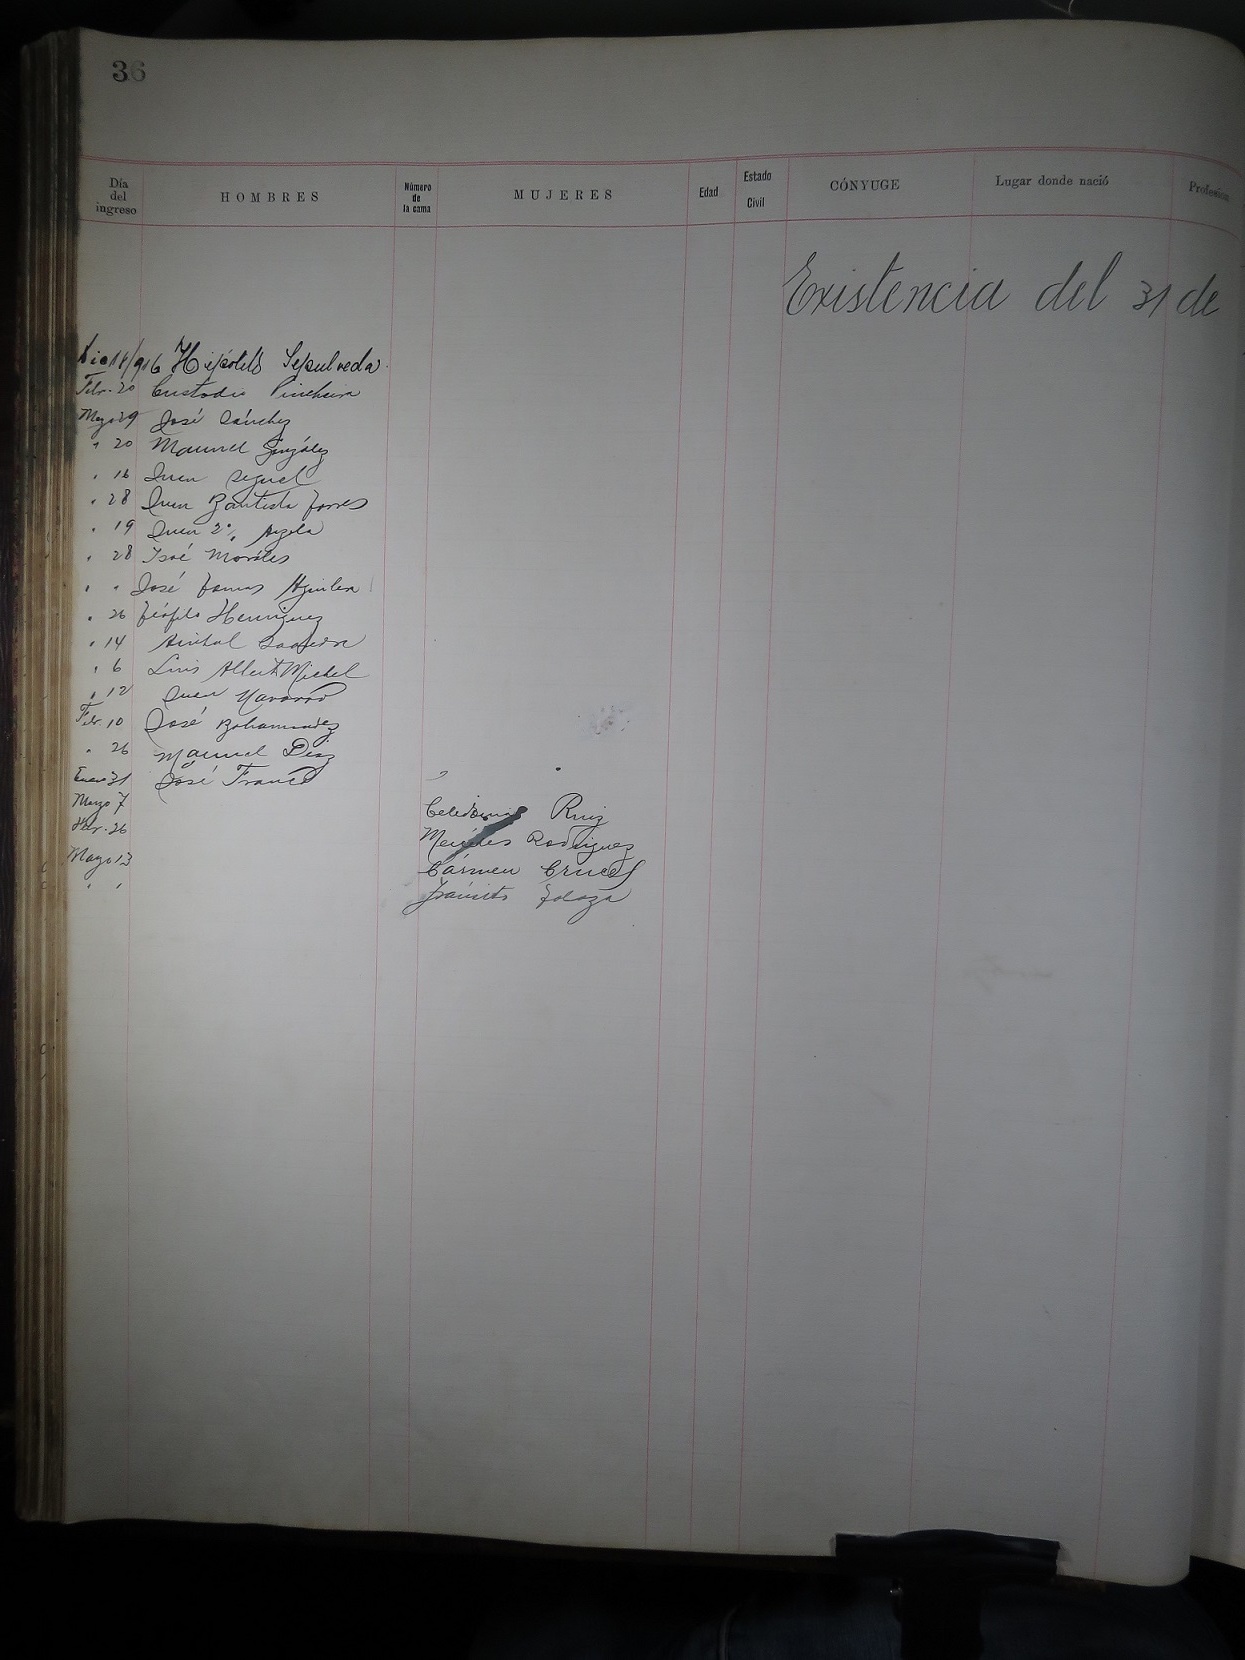 36
Día del ingreso HOMBRES Número de la cama MUJERES Edad Estado Civil CÓNYUGE Lugar donde nació Profesion
Existencia del 31 de
Dic 14/916 Hipólito Sepulveda
Febr. 20 Custodio Pincheira
Mayo 29 José Sánchez
" 20 Manuel González
" 16 Juan Seguel
" 28 Juan Bautista Torres
" 19 Juan 2º
" 28 José Moráles
" " José Tomas Aguilera
" 26 Teófilo Henriquez
" 14 Anibal Saavedra
" 6 Luis Alberto Michel
" 12 Juan Navarro
Febr. 10 José Bahamondez
" 26 Manuel Diaz
Enero 31 José Franco
Mayo 7 Celedonia Ruiz
26 Mercedes Rodriguez
Mayo 13 Cármen Cruces
" " Tránsito Zoloza